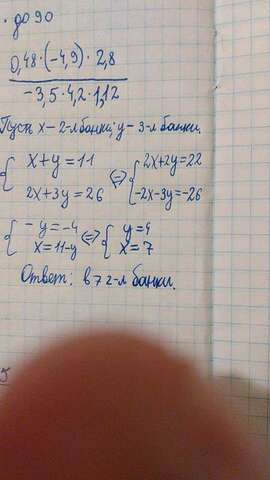 · до 90
0,48·(-4,9)·2,8
-3,5·4,2·1,12
Пусть x - 2-л банки; y - 3-л банки.
{ x+y=11 <=> { 2x+2y=22
{ 2x+3y=26 { -2x-3y=-26
{ -y=-4 <=> { y=4
{ x=11-y { x=7
Ответ: в 7 2-л банки.
5